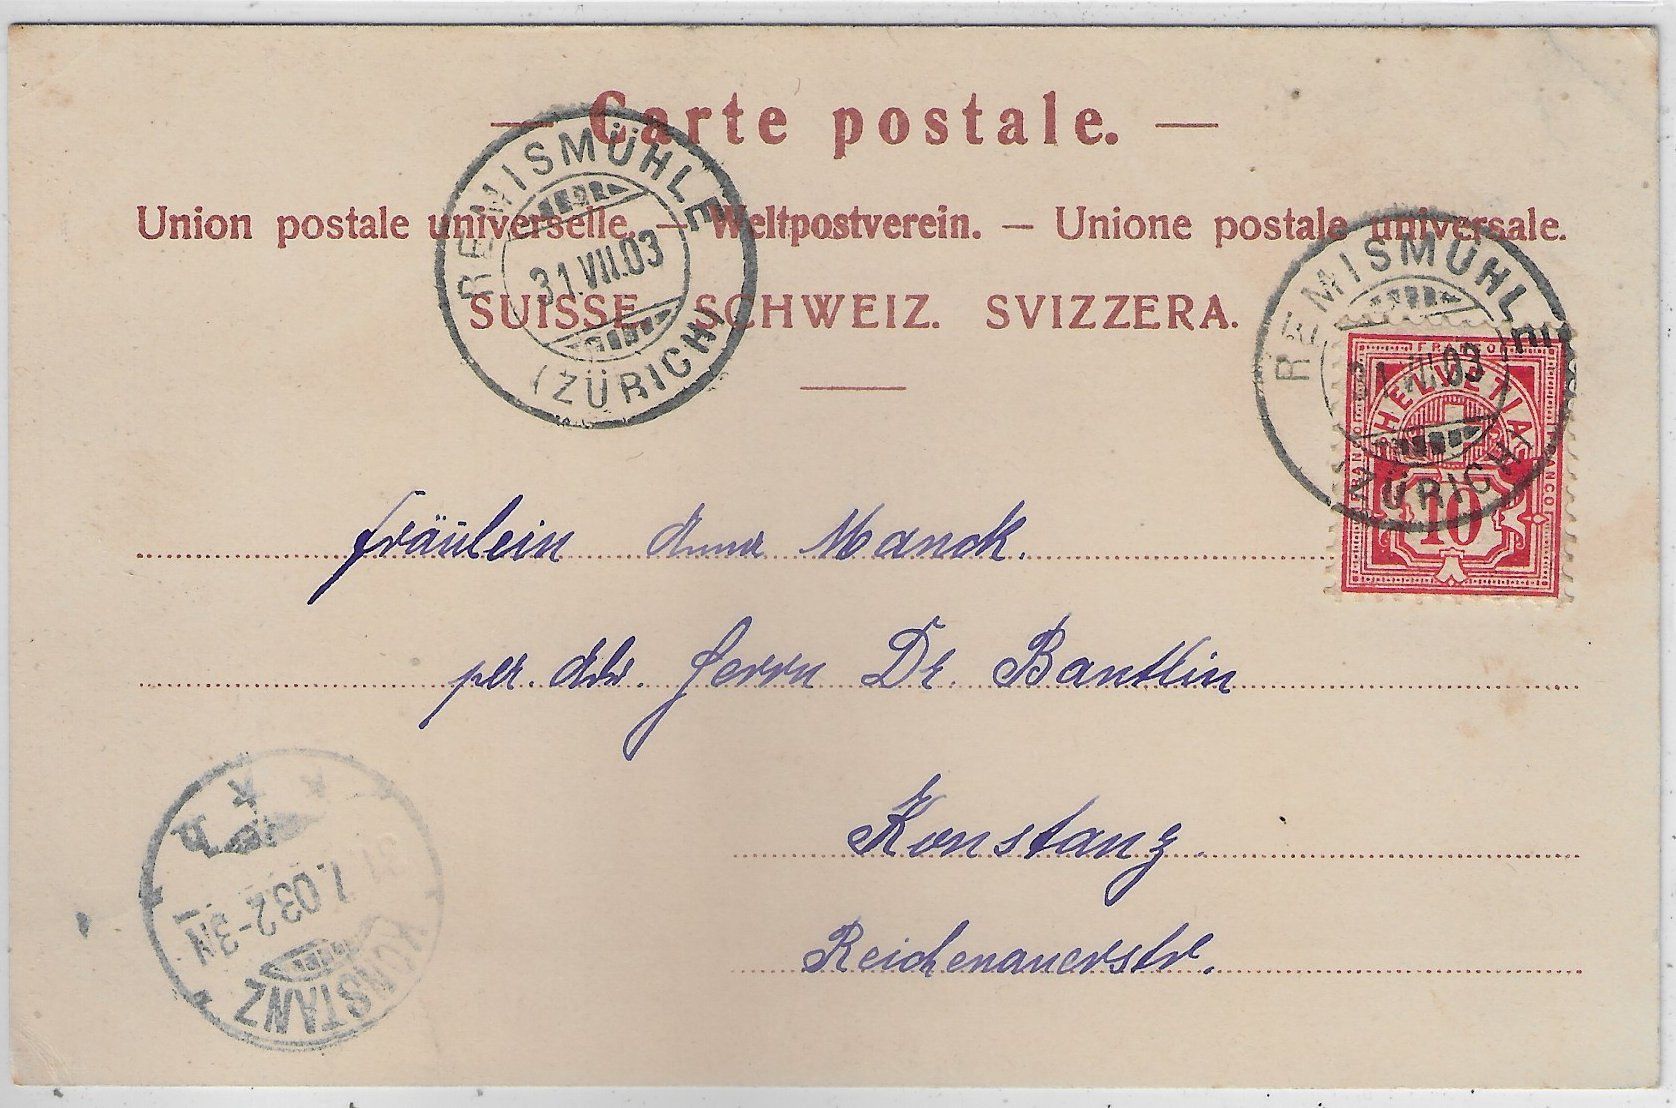 — Carte postale. —
Union postale universelle. — Weltpostverein. — Unione postale universale.
SUISSE. SCHWEIZ. SVIZZERA.
REMISMÜHLE
31.VII.03
(ZÜRICH)
REMISMÜHLE
31.VII.03
(ZÜRICH)
FRANCO
HELVETIA
FRANCO
FRANCO
10
Fräulein Anna Manck.
per. Adr. Herrn Dr. Bantlin
Konstanz.
Reichenauerstr.
KONSTANZ
31.7.03.2-3N